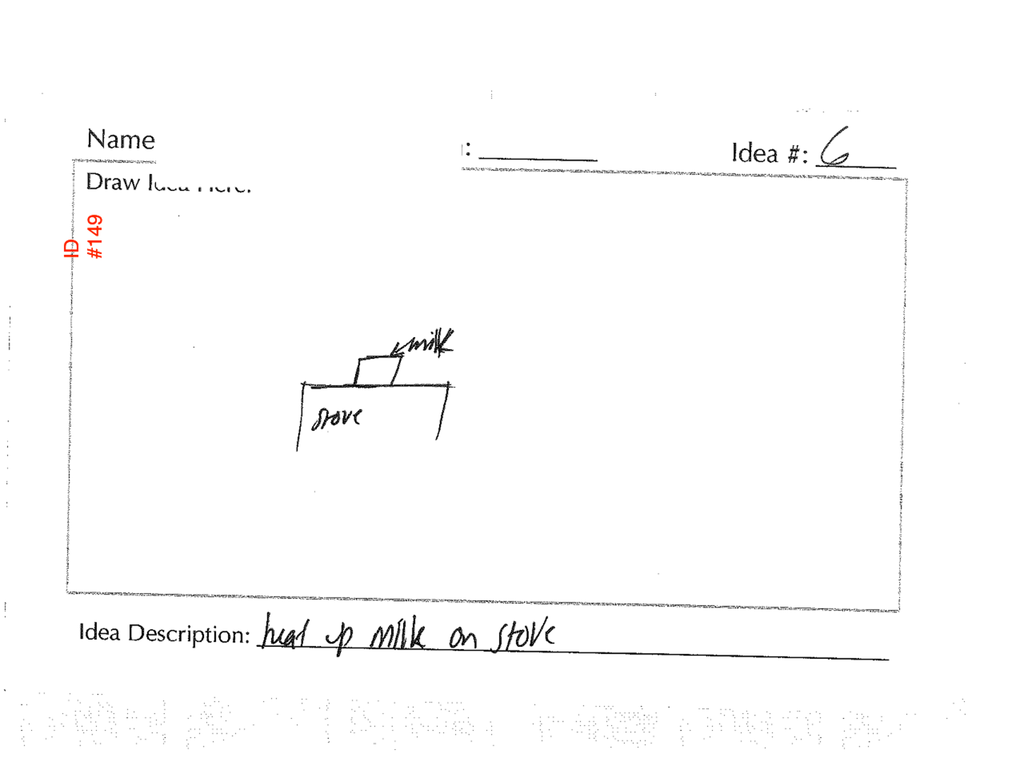 Name
: Idea #: 6
Draw
ID
#149
milk
stove
Idea Description: heat up milk on stove